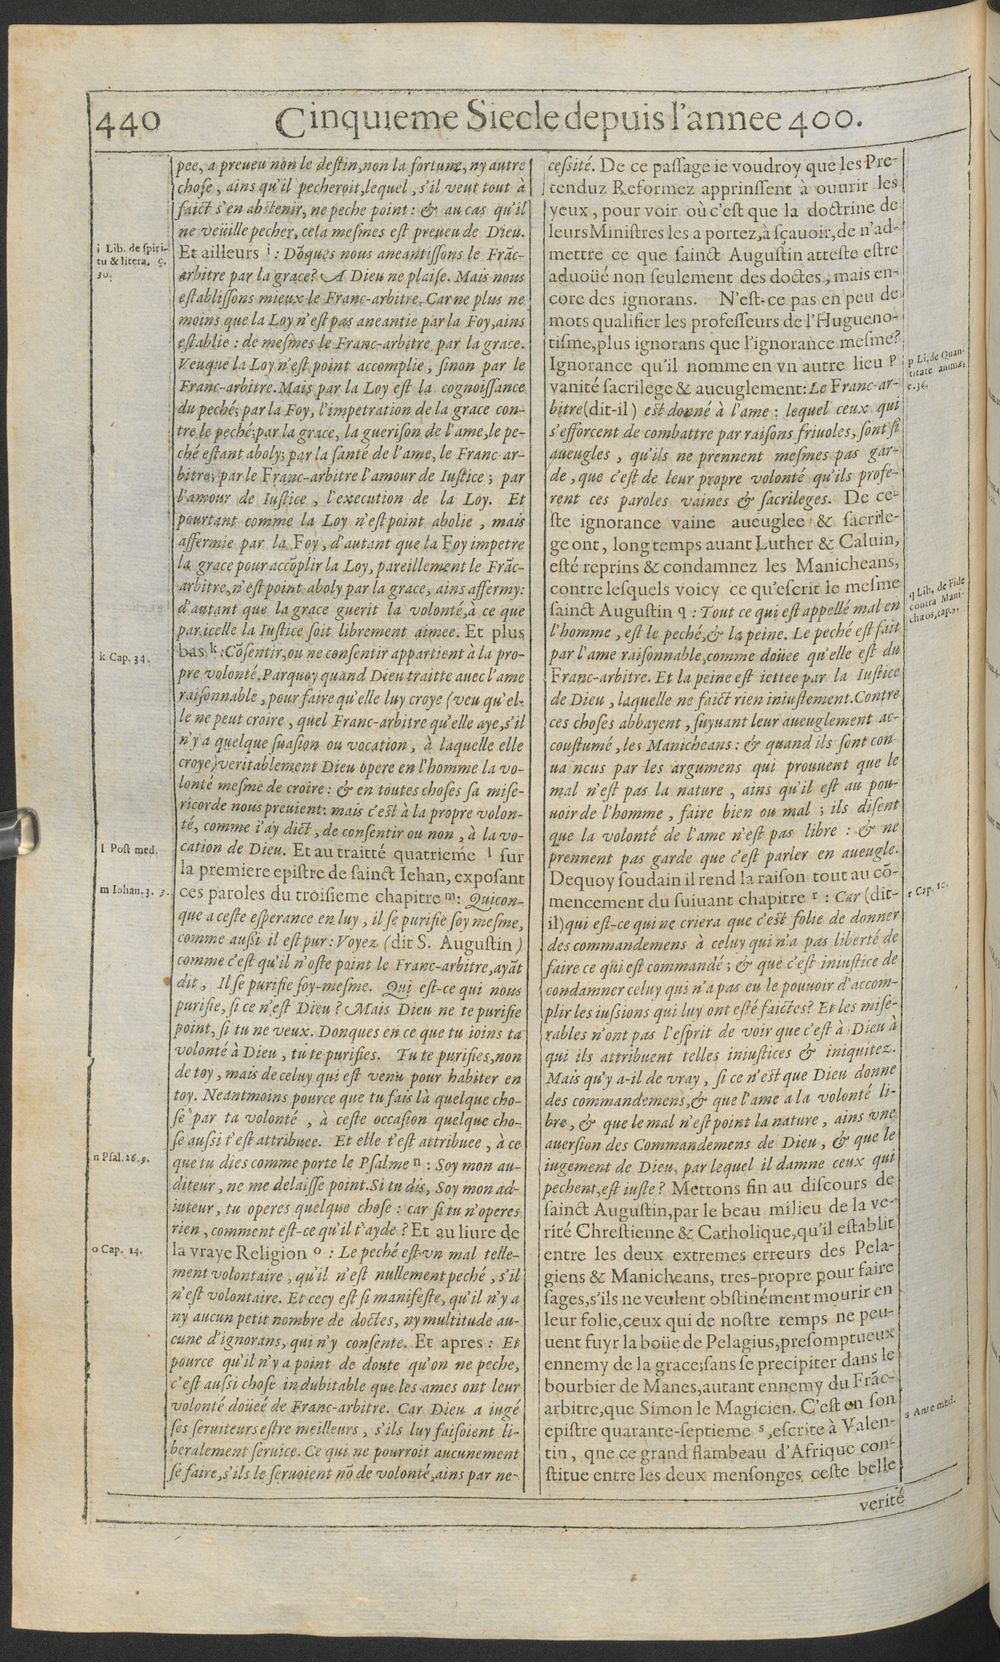 440
Cinquieme Siecle depuis l'annee 400.
pee, a preueu non le destin, non la fortune, ny autre
chose, ains qu'il pecheroit, lequel, s'il veut tout à
faict s'en abstenir, ne peche point: & au cas qu'il
ne veüille pecher, cela mesmes est preueu de Dieu.
i Lib. de spiri-
tu & litera, c.
30.
Et ailleurs i : Dōques nous aneantissons le Frāc-
arbitre par la grace? A Dieu ne plaise. Mais nous
establissons mieux le Franc-arbitre. Car ne plus ne
moins que la Loy n'est pas aneantie par la Foy, ains
establie : de mesmes le Franc-arbitre par la grace.
Veuque la Loy n'est point accomplie, sinon par le
Franc-arbitre. Mais par la Loy est la cognoissance
du peché; par la Foy, l'impetration de la grace con-
tre le peché; par la grace, la guerison de l'ame, le pe-
ché estant aboly; par la santé de l'ame, le Franc-ar-
bitre; par le Franc-arbitre l'amour de Iustice; par
l'amour de Iustice, l'execution de la Loy. Et
pourtant comme la Loy n'est point abolie, mais
affermie par la Foy, d'autant que la Foy impetre
la grace pour accōplir la Loy, pareillement le Frāc-
arbitre, n'est point aboly par la grace, ains affermy:
d'autant que la grace guerit la volonté, à ce que
par icelle la Iustice soit librement aimee. Et plus
k Cap. 34.
bas k : Cōsentir, ou ne consentir appartient à la pro-
pre volonté. Parquoy quand Dieu traitte auec l'ame
raisonnable, pour faire qu'elle luy croye (veu qu'el-
le ne peut croire, quel Franc-arbitre qu'elle aye, s'il
n'y a quelque suasion ou vocation, à laquelle elle
croye) veritablement Dieu opere en l'homme la vo-
lonté mesme de croire: & en toutes choses sa mise-
ricorde nous preuient: mais c'est à la propre volon-
té, comme i'ay dict, de consentir ou non, à la vo-
l Post med.
cation de Dieu. Et au traitté quatrieme l sur
la premiere epistre de sainct Iehan, exposant
m Iohan. 3. 3.
ces paroles du troisieme chapitre m: Quicon-
que a ceste esperance en luy, il se purifie soy mesme,
comme aussi il est pur: Voyez (dit S. Augustin)
comme c'est qu'il n'oste point le Franc-arbitre, ayāt
dit, Il se purifie soy-mesme. Qui est-ce qui nous
purifie, si ce n'est Dieu? Mais Dieu ne te purifie
point, si tu ne veux. Donques en ce que tu ioins ta
volonté à Dieu, tu te purifies. Tu te purifies, non
de toy, mais de celuy qui est venu pour habiter en
toy. Neantmoins pource que tu fais là quelque cho-
se par ta volonté, à ceste occasion quelque cho-
se aussi t'est attribuee. Et elle t'est attribuee, à ce
n Psal. 26. 9.
que tu dies comme porte le Psalme n : Soy mon au-
diteur, ne me delaisse point. Si tu dis, Soy mon ad-
iuteur, tu operes quelque chose: car si tu n'operes
rien, comment est-ce qu'il t'ayde? Et au liure de
o Cap. 14.
la vraye Religion o : Le peché est vn mal telle-
ment volontaire, qu'il n'est nullement peché, s'il
n'est volontaire. Et cecy est si manifeste, qu'il n'y a
ny aucun petit nombre de doctes, ny multitude au-
cune d'ignorans, qui n'y consente. Et apres : Et
pource qu'il n'y a point de doute qu'on ne peche,
c'est aussi chose indubitable que les ames ont leur
volonté doüeé de Franc-arbitre. Car Dieu a iugé
ses seruiteurs estre meilleurs, s'ils luy faisoient li-
beralement seruice. Ce qui ne pourroit aucunement
se faire, s'ils le seruoient nō de volonté, ains par ne-
cessité. De ce passage ie voudroy que les Pre-
tenduz Reformez apprinssent à ouurir les
yeux, pour voir où c'est que la doctrine de
leurs Ministres les a portez, à sçauoir, de n'ad-
mettre ce que sainct Augustin atteste estre
aduoüé non seulement des doctes, mais en-
core des ignorans. N'est-ce pas en peu de
mots qualifier les professeurs de l'Hugueno-
tisme, plus ignorans que l'ignorance mesme?
Ignorance qu'il nomme en vn autre lieu p
p Li. de Quan-
titate animæ,
c. 36.
vanité sacrilege & aueuglement: Le Franc-ar-
bitre (dit-il) est donné à l'ame : lequel ceux qui
s'efforcent de combattre par raisons friuoles, sont si
aueugles, qu'ils ne prennent mesmes pas gar-
de, que c'est de leur propre volonté qu'ils profe-
rent ces paroles vaines & sacrileges. De ce-
ste ignorance vaine aueuglee & sacrile-
ge ont, long temps auant Luther & Caluin,
esté reprins & condamnez les Manicheans,
contre lesquels voicy ce qu'escrit le mesme
q Lib. de Fide
contra Mani-
chæos, cap. 9.
sainct Augustin q : Tout ce qui est appellé mal en
l'homme, est le peché, & la peine. Le peché est fait
par l'ame raisonnable, comme doüee qu'elle est du
Franc-arbitre. Et la peine est iettee par la Iustice
de Dieu, laquelle ne faict rien iniustement. Contre
ces choses abbayent, suyuant leur aueuglement ac-
coustumé, les Manicheans: & quand ils sont con
ua ncus par les argumens qui prouuent que le
mal n'est pas la nature, ains qu'il est au pou-
uoir de l'homme, faire bien ou mal ; ils disent
que la volonté de l'ame n'est pas libre : & ne
prennent pas garde que c'est parler en aueugle.
Dequoy soudain il rend la raison tout au cō-
r Cap. 10.
mencement du suiuant chapitre r : Car (dit-
il) qui est-ce qui ne criera que c'est folie de donner
des commandemens à celuy qui n'a pas liberté de
faire ce qui est commandé; & que c'est iniustice de
condamner celuy qui n'a pas eu le pouuoir d'accom-
plir les iussions qui luy ont esté faictes? Et les mise-
rables n'ont pas l'esprit de voir que c'est à Dieu à
qui ils attribuent telles iniustices & iniquitez.
Mais qu'y a-il de vray, si ce n'est que Dieu donne
des commandemens, & que l'ame a la volonté li-
bre, & que le mal n'est point la nature, ains vne
auersion des Commandemens de Dieu, & que le
iugement de Dieu, par lequel il damne ceux qui
pechent, est iuste? Mettons fin au discours de
sainct Augustin, par le beau milieu de la ve-
rité Chrestienne & Catholique, qu'il establit
entre les deux extremes erreurs des Pela-
giens & Manicheans, tres-propre pour faire
sages, s'ils ne veulent obstinément mourir en
leur folie, ceux qui de nostre temps ne peu-
uent fuyr la boüe de Pelagius, presomptueux
ennemy de la grace, sans se precipiter dans le
bourbier de Manes, autant ennemy du Frāc-
arbitre, que Simon le Magicien. C'est en son
s Ante med.
epistre quarante-septieme s, escrite à Valen-
tin, que ce grand flambeau d'Afrique con-
stitue entre les deux mensonges ceste belle
verité